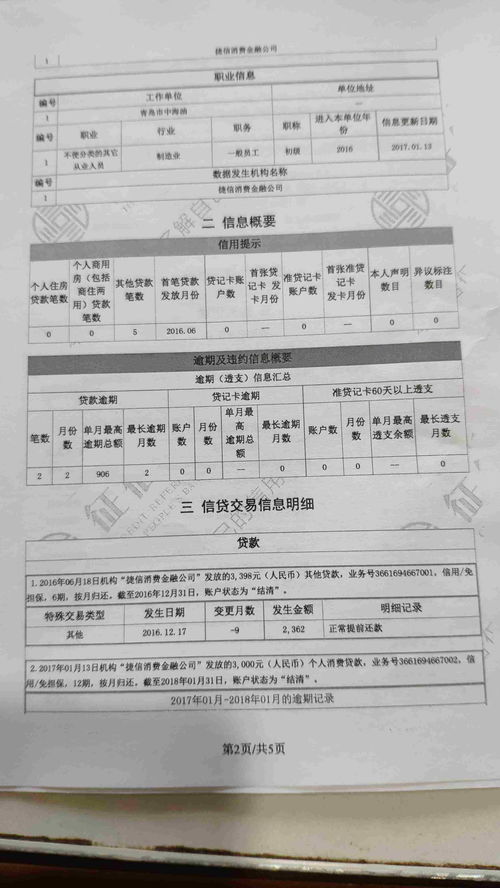 1 捷信消费金融公司
职业信息
编号 工作单位 单位地址
1 青岛市中海油 —
编号 职业 行业 职务 职称 进入本单位年份 信息更新日期
1 不便分类的其它从业人员 制造业 一般员工 初级 2016 2017.01.13
编号 数据发生机构名称
1 捷信消费金融公司
二 信息概要
信用提示
个人住房贷款笔数 个人商用房（包括商住两用）贷款笔数 其他贷款笔数 首笔贷款发放月份 贷记卡账户数 首张贷记卡 发卡月份 准贷记卡账户数 首张准贷记卡 发卡月份 本人声明数目 异议标注数目
0 0 5 2016.06 0 — 0 — 0 0
逾期及违约信息概要
逾期（透支）信息汇总
贷款逾期 贷记卡逾期 准贷记卡60天以上透支
笔数 月份数 单月最高逾期总额 最长逾期月数 账户数 月份数 单月最高逾期总额 最长逾期月数 账户数 月份数 单月最高透支余额 最长透支月数
2 2 906 2 0 0 — 0 0 0 — 0
三 信贷交易信息明细
贷款
1.2016年06月18日机构“捷信消费金融公司”发放的3,398元（人民币）其他贷款，业务号3661694667001，信用/免
担保，6期，按月归还。截至2016年12月31日，账户状态为“结清”。
特殊交易类型 发生日期 变更月数 发生金额 明细记录
其他 2016.12.17 -9 2,362 正常提前还款
2.2017年01月13日机构“捷信消费金融公司”发放的3,000元（人民币）个人消费贷款，业务号3661694667002，信
用/免担保，12期，按月归还。截至2018年01月31日，账户状态为“结清”。
2017年01月-2018年01月的逾期记录
第2页/共5页